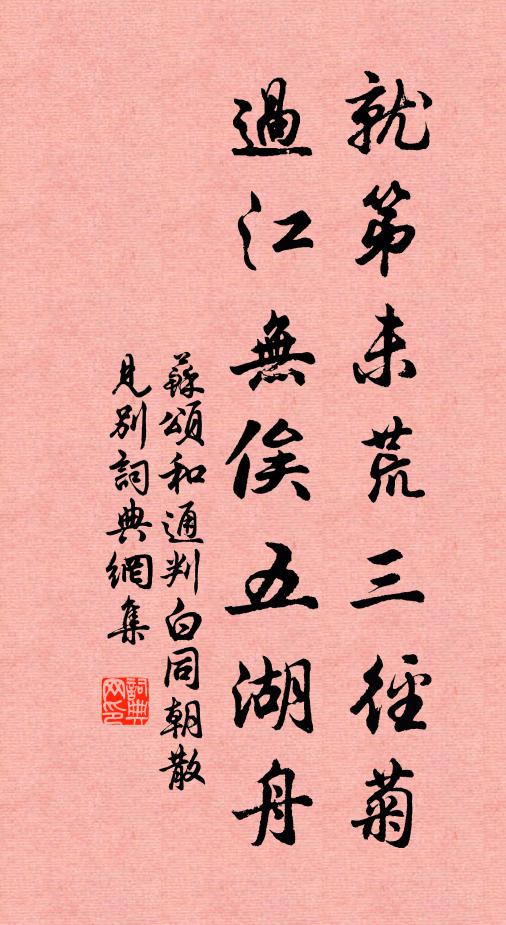 就第未荒三徑菊
過江無俟五湖舟
蘇頌和通判白同朝散
見別詞典網集
詞典网印